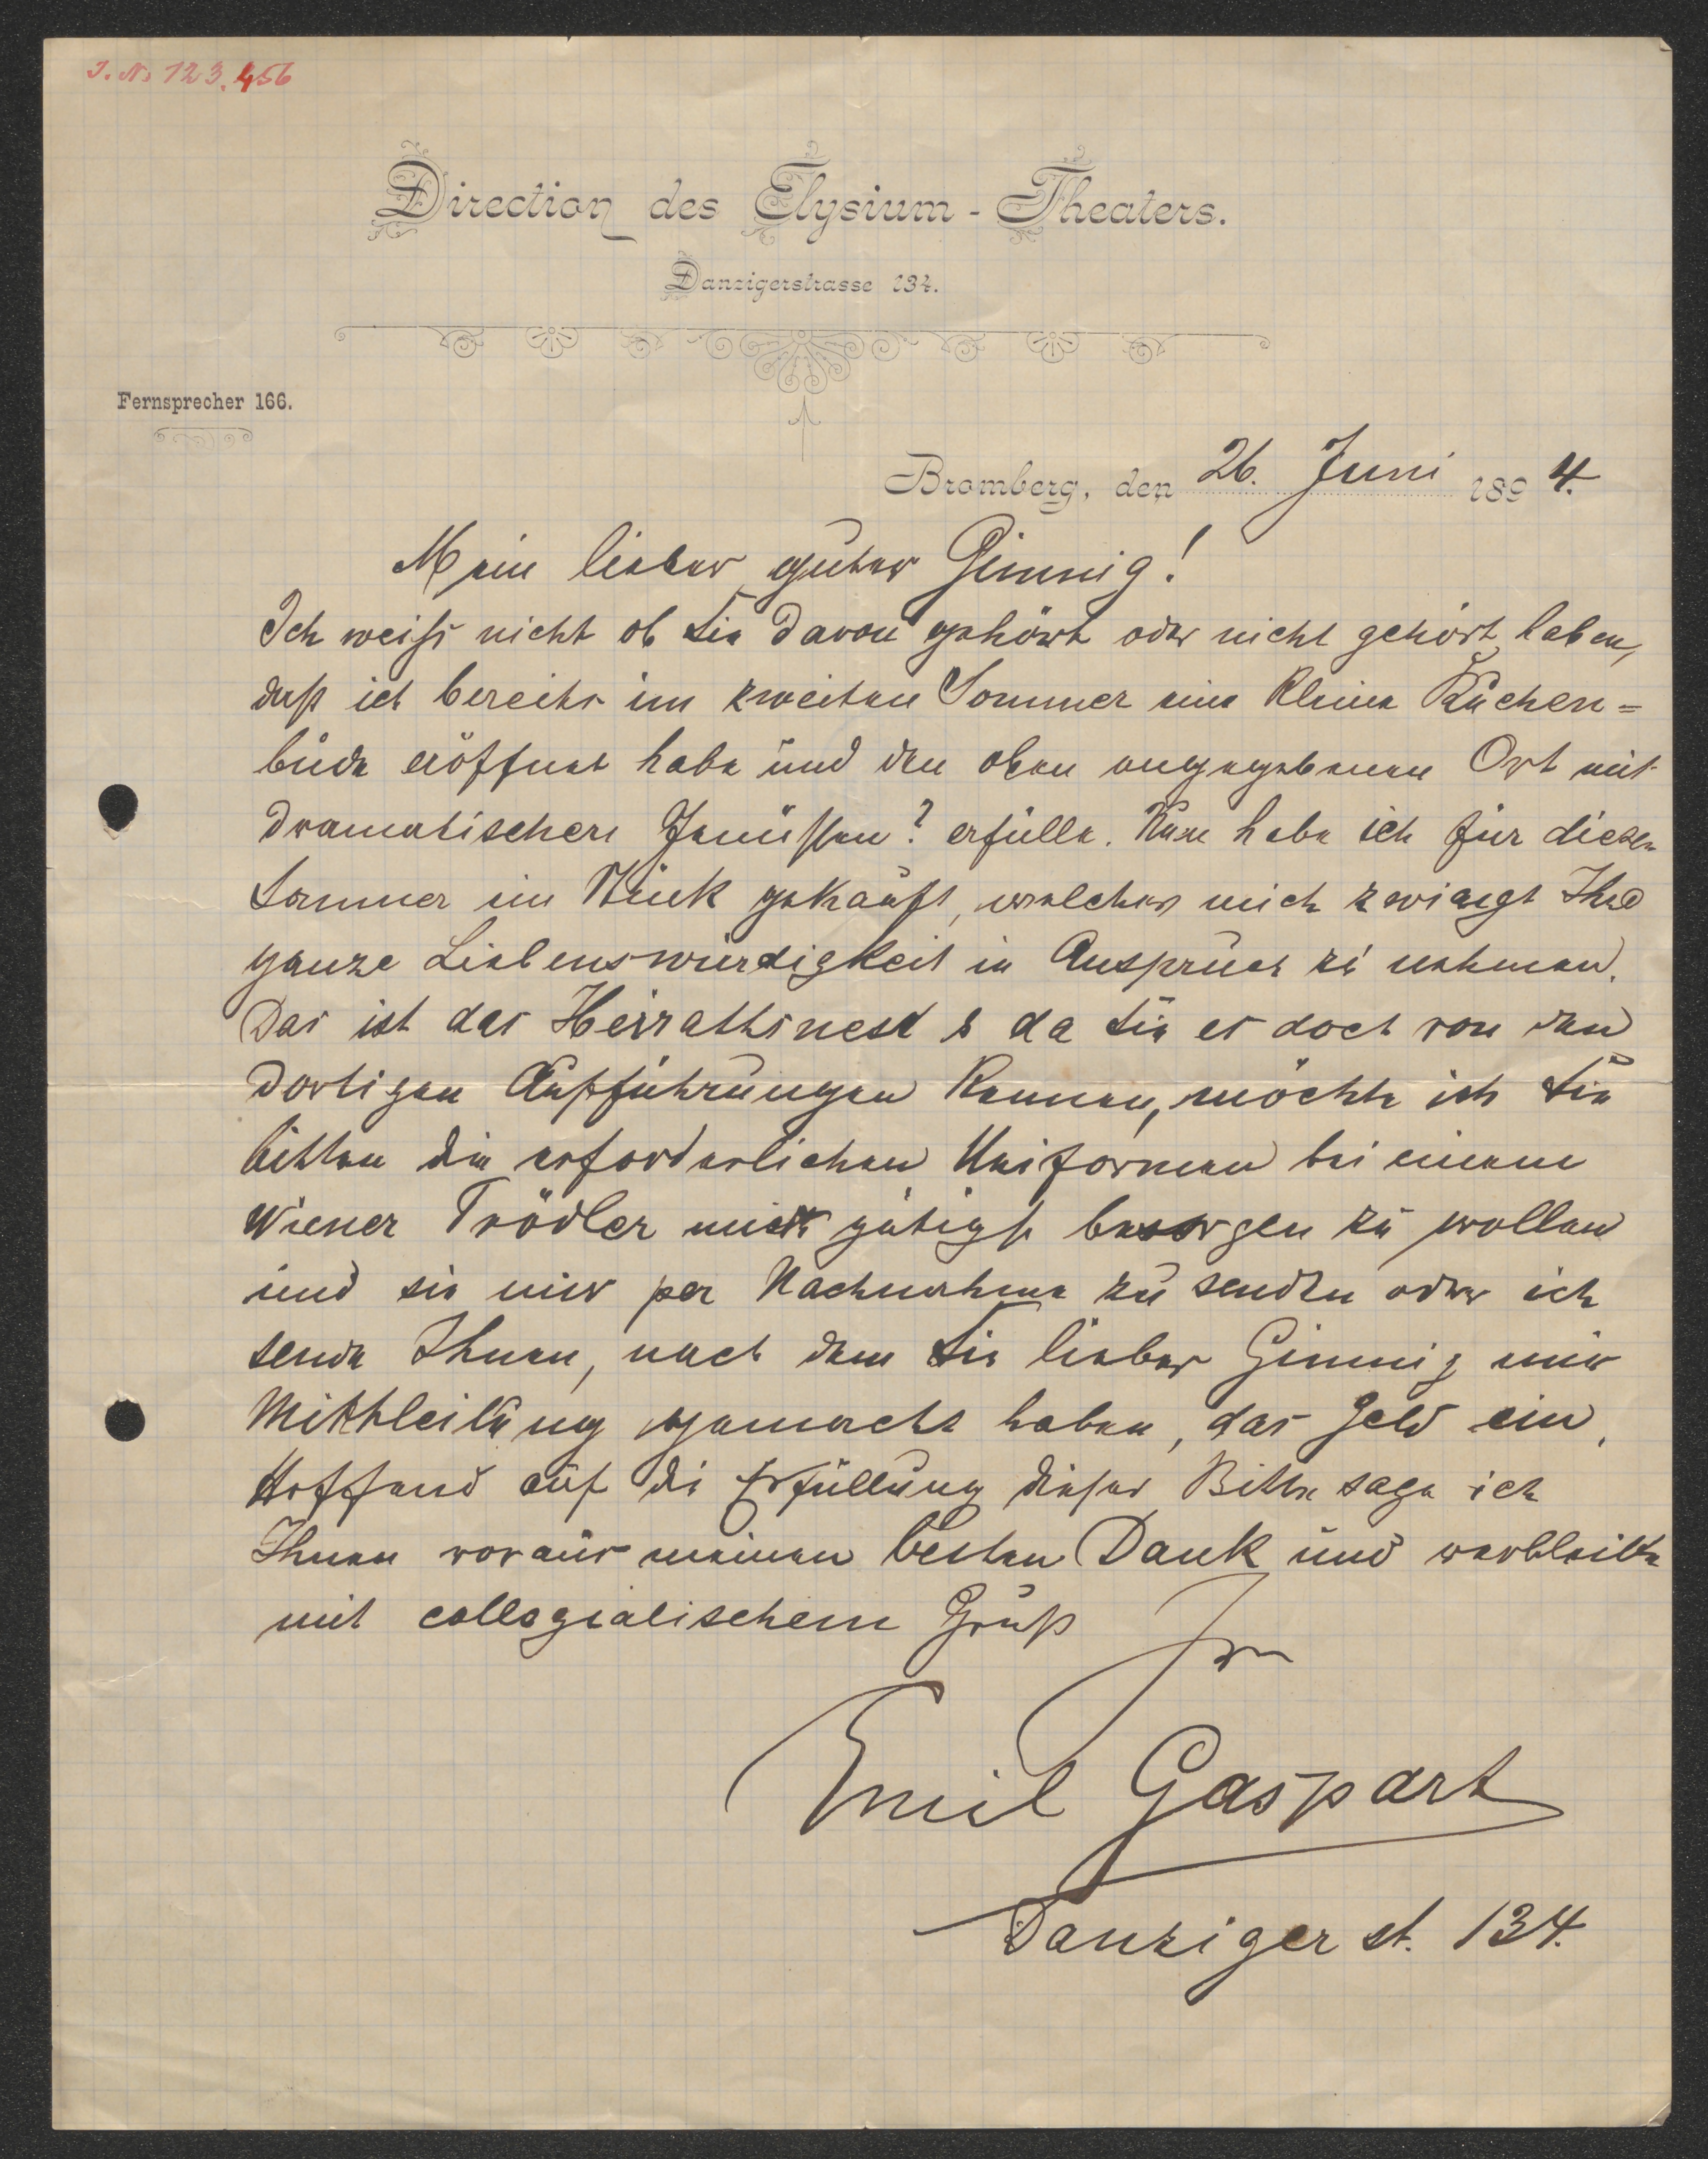 J. N. 123.456
Direction des Elysium-Theaters.
Danzigerstrasse 134.
Fernsprecher 166.
Bromberg, den 26. Juni 1894.
Mein lieber guter Gimnig!
Ich weiß nicht ob Sie davon gehört oder nicht gehört haben,
daß ich bereits im zweiten Sommer eine kleine Kuchen=
bude eröffnet habe und den oben angegebenen Ort mit
dramatischen Genüssen? erfülle. Nun habe ich für diesen
Sommer ein Stück gekauft, welches mich zwingt Ihre
ganze Liebenswürdigkeit in Anspruch zu nehmen.
Das ist das Heirathsnest & da Sie es doch von den
dortigen Aufführungen kennen, möchte ich Sie
bitten die erforderlichen Uniformen bei einem
Wiener Trödler gütigst besorgen zu wollen
und sie mir per Nachnahme zu senden oder ich
sende Ihnen, nach dem Sie lieber Gimnig mir
Mittheilung gemacht haben, das Geld ein.
Hoffend auf die Erfüllung dieser Bitte sage ich
Ihnen voraus meinen besten Dank und verbleibe
mit collegialischem Gruß
Ihr
Emil Gaspart
Danziger st. 134.